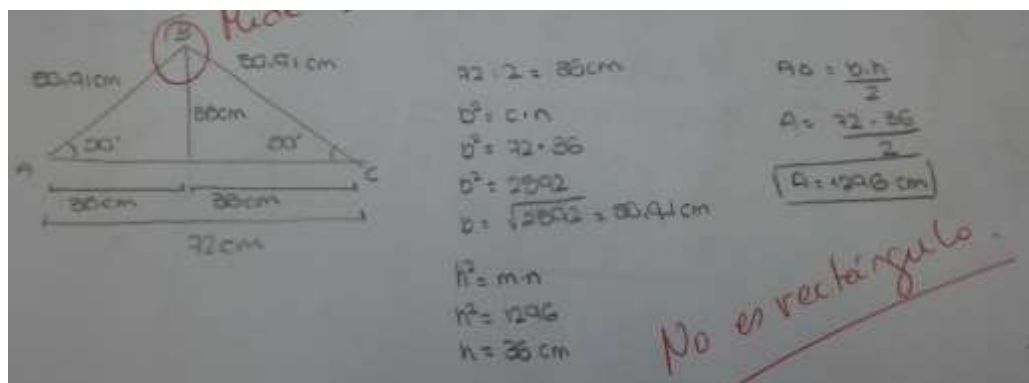 B
50.91cm
50.91cm
36cm
A
C
36cm
36cm
72cm
72:2 = 36cm
b² = c·n
b² = 72·36
b² = 2592
b = √2592 = 50.91cm
h² = m·n
h² = 1296
h = 36 cm
b·h
2
A = 72·36
2
A = 1296 cm
No es rectángulo.